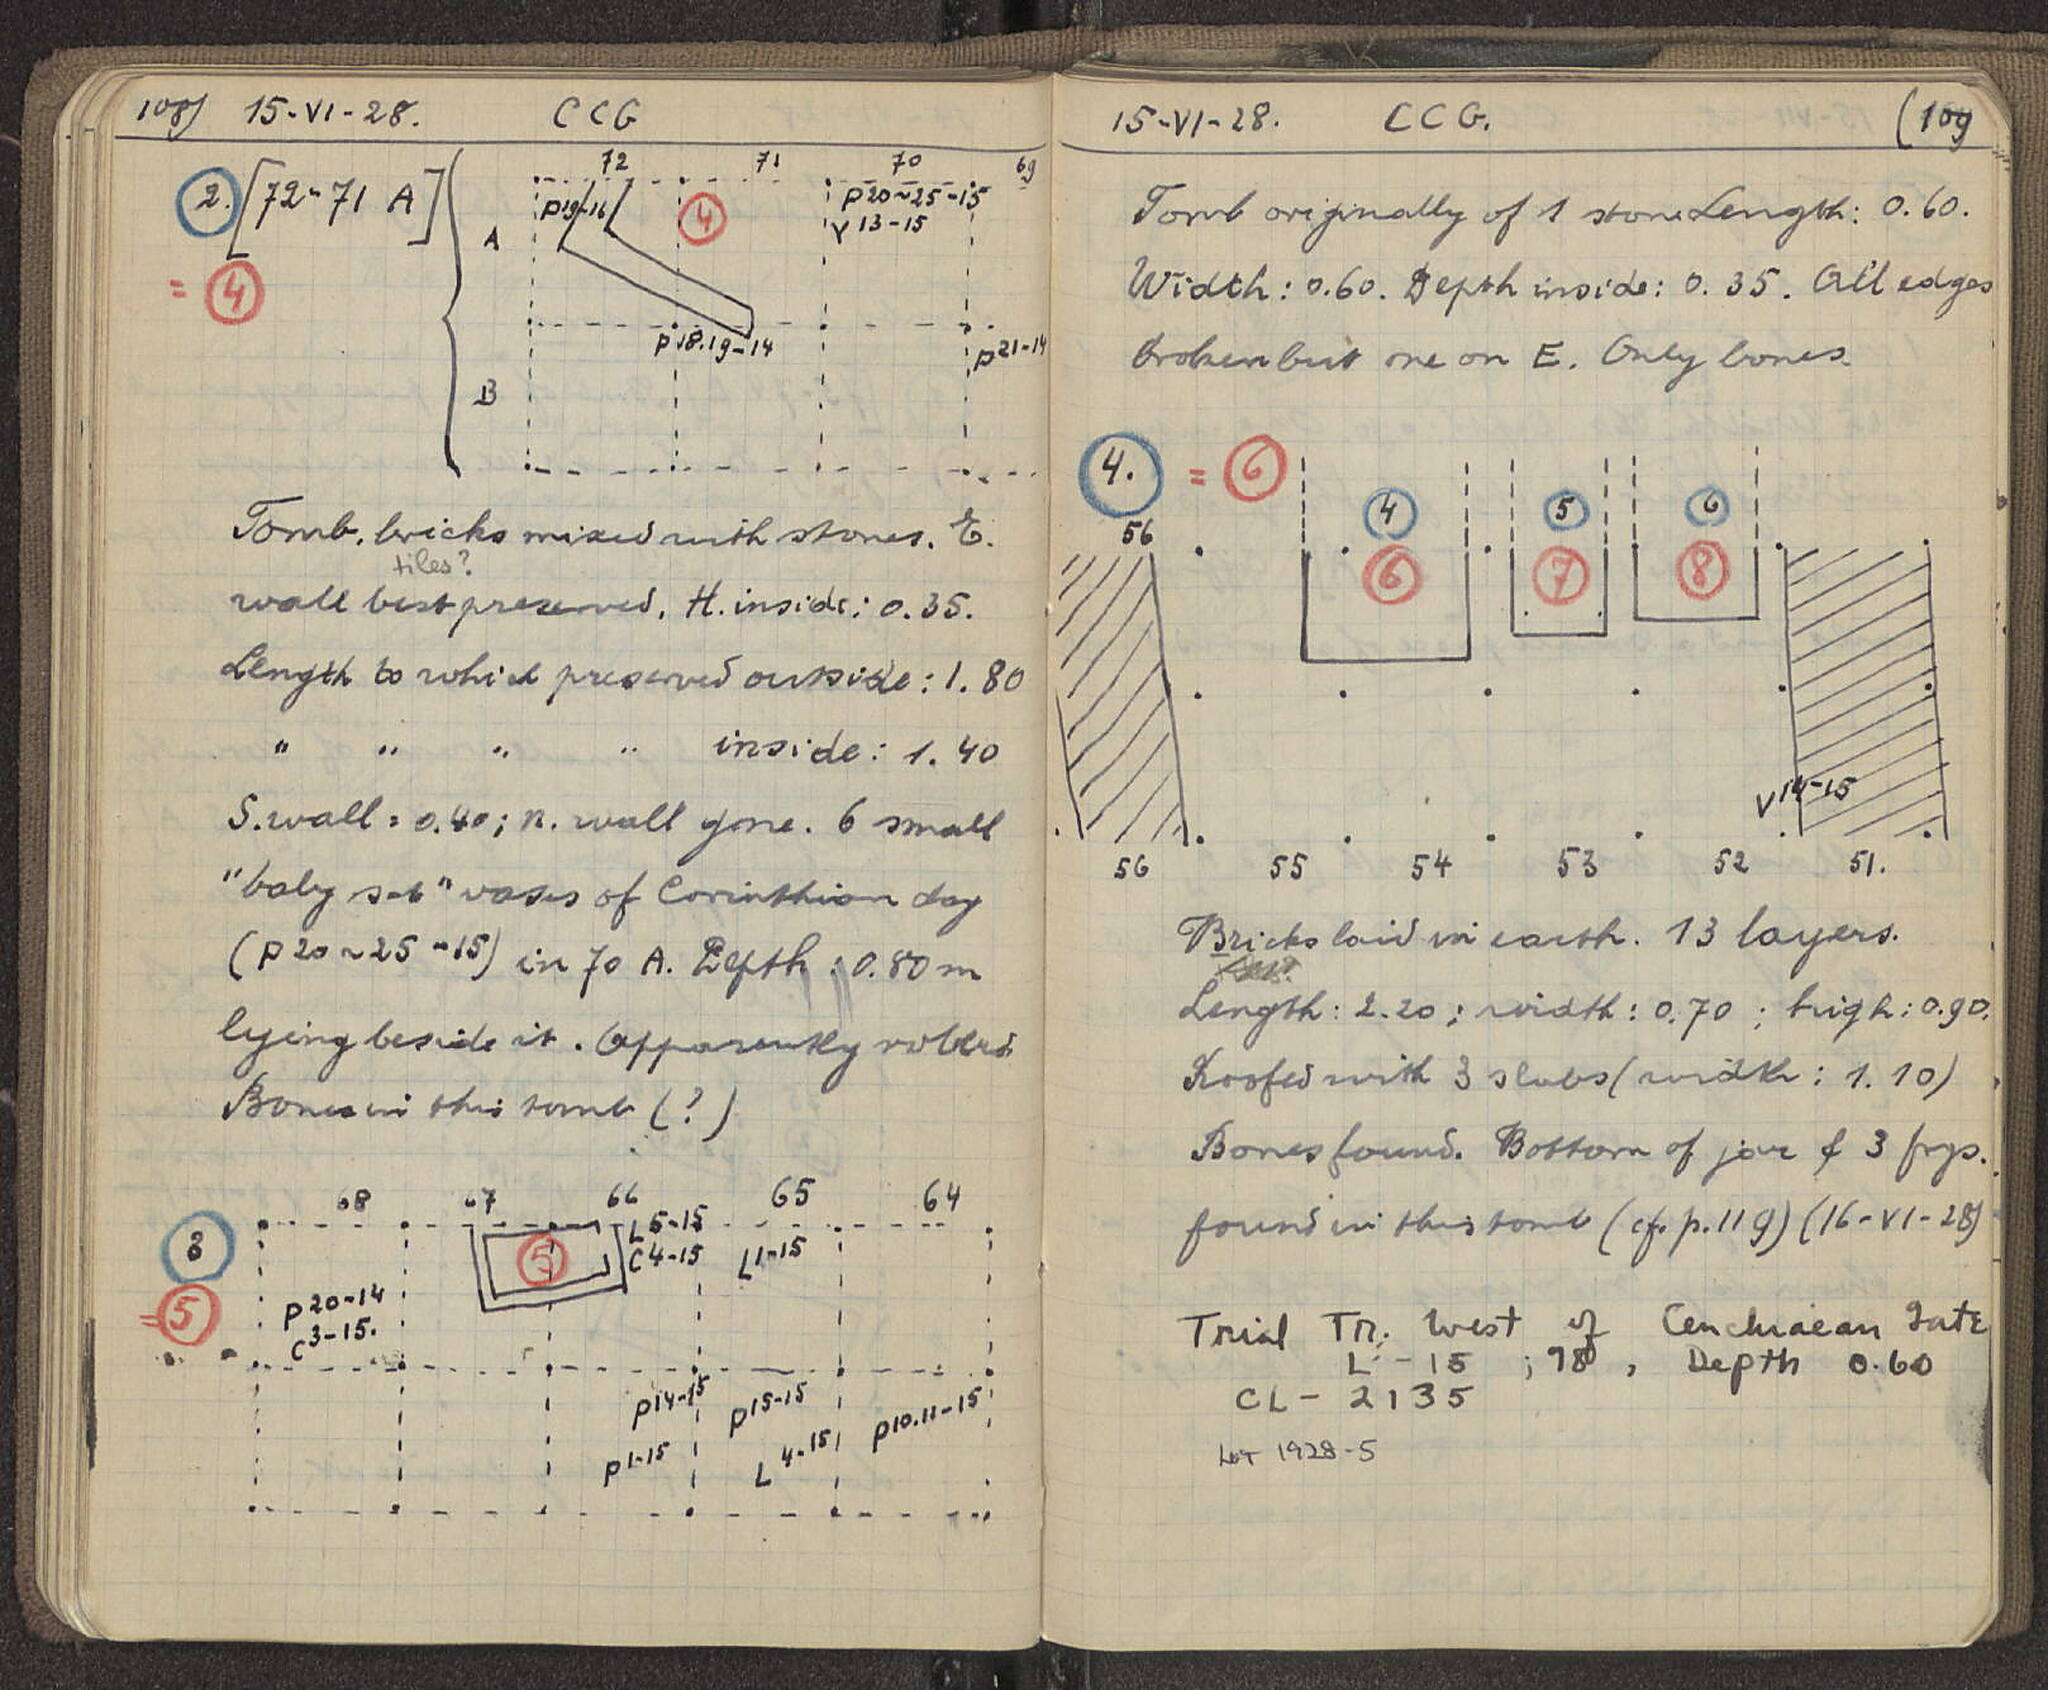 108) 15-VI-28. CCG
72 71 70 69
2. [72-71 A]
= 4
A
B
P19-16
4
P20~25-15
V13-15
P18.19-14
P21-14
Tomb, bricks mixed with stones. E.
tiles?
wall best preserved. H. inside: 0.35.
Length to which preserved outside: 1.80
" " " " inside: 1.40
S. wall = 0.40; n. wall gone. 6 small
"baby set" vases of Corinthian day
(P20~25-15) in 70 A. Depth: 0.80 m
lying beside it. Apparently robbed.
Bones in this tomb (?)
68 67 66 65 64
3
= 5
5
L5-15
C4-15
L1-15
P20-14
C3-15.
P14-15
P15-15
P10.11-15
P1-15
L4-15
15-VI-28. CCG. (109
Tomb originally of 1 stone Length: 0.60.
Width: 0.60. Depth inside: 0.35. All edges
broken but one on E. Only bones.
4. = 6
4 5 6
6 7 8
56
V14-15
56 55 54 53 52 51.
Bricks laid in earth. 13 layers.
Length: 2.20; width: 0.70; high: 0.90.
Roofed with 3 slabs (width: 1.10)
Bones found. Bottom of jar & 3 frgs.
found in this tomb (cf. p. 119) (16-VI-28)
Trial Tr. West of Cenchraean Gate
L - 15 ; 98 , Depth 0.60
CL - 2135
Lot 1928-5